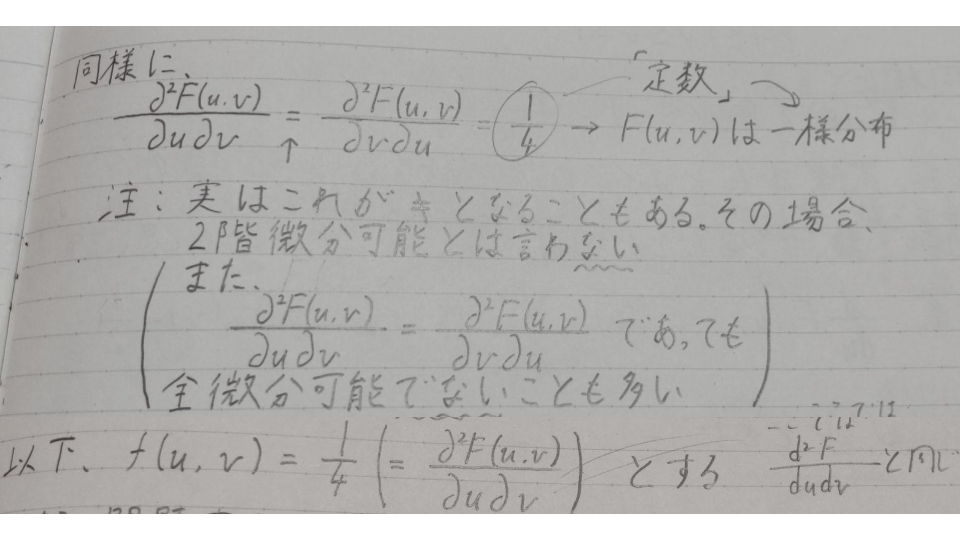 同様に、
∂²F(u,v)/∂u∂v = ∂²F(u,v)/∂v∂u = 1/4 → F(u,v)は一様分布
「定数」
↑
注:実はこれが≠となることもある。その場合、
2階微分可能とは言わない
(また、
∂²F(u,v)/∂u∂v = ∂²F(u,v)/∂v∂u であっても
全微分可能でないことも多い)
以下、f(u,v) = 1/4 (= ∂²F(u,v)/∂u∂v) とする
d²F/dudv と同じ